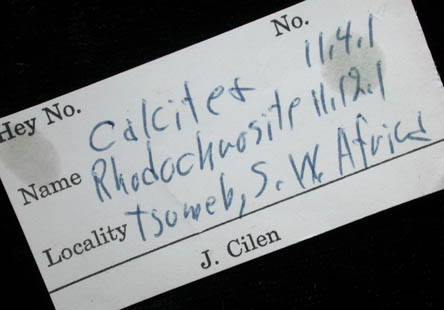 No.
Hey No. Calcite & 11.4.1
Name Rhodochrosite 11.12.1
Locality Tsumeb, S. W. Africa
J. Cilen